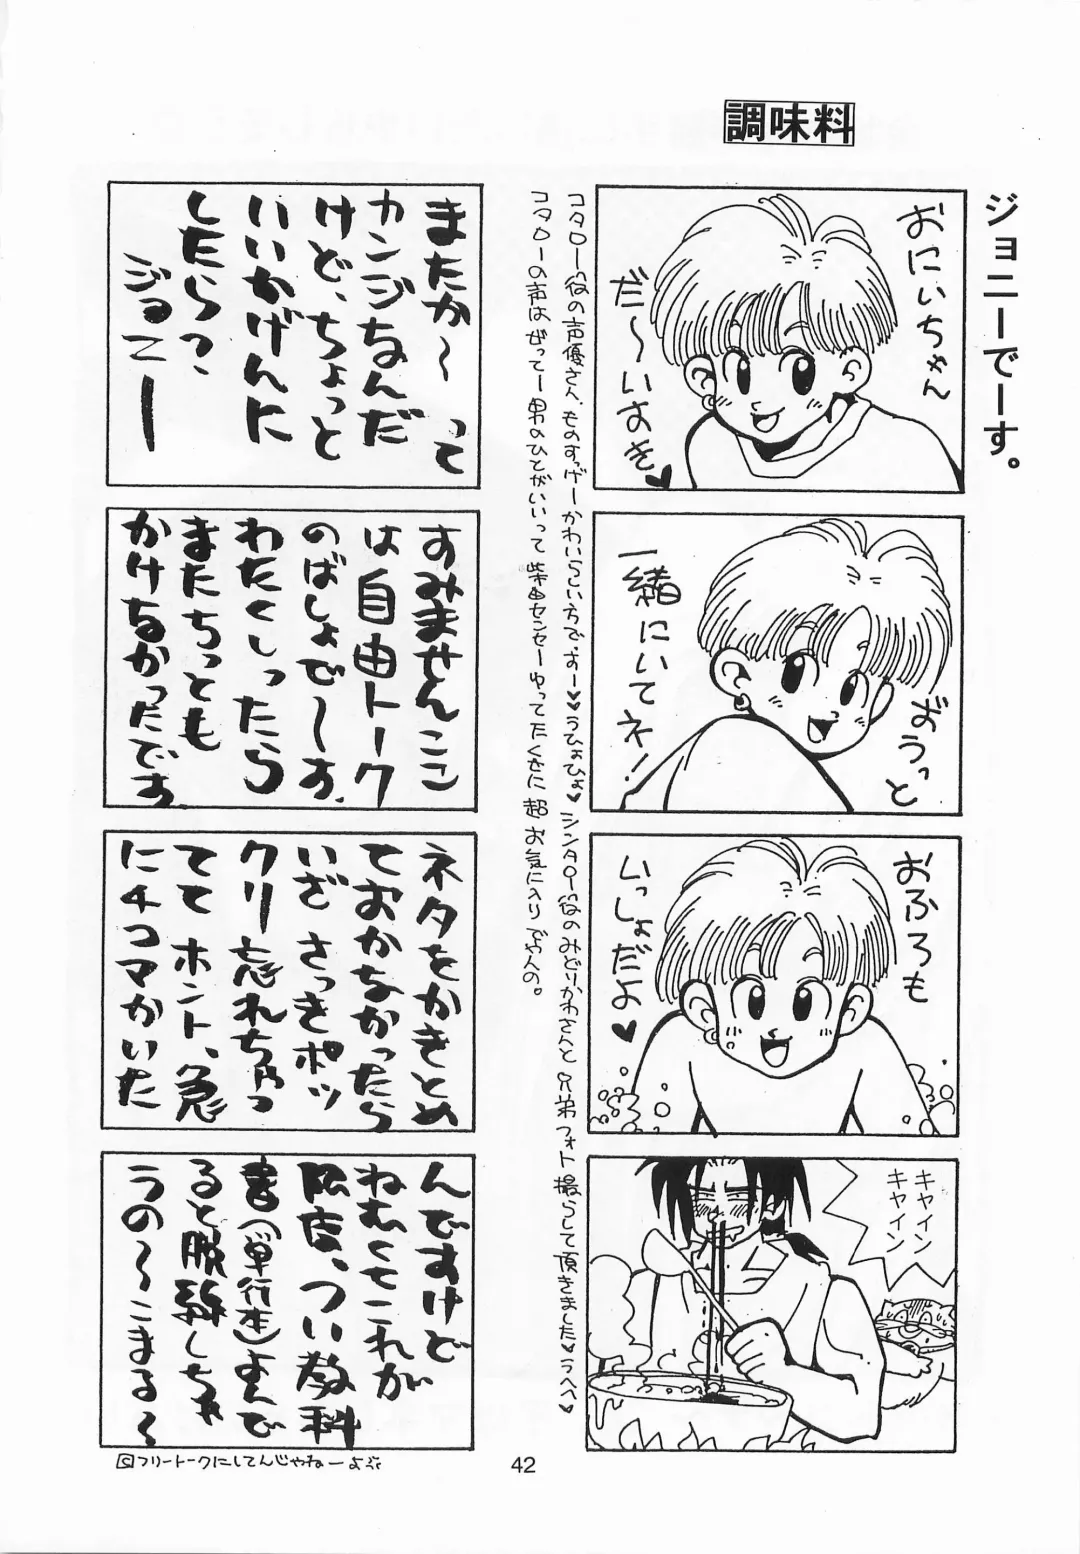 調味料
ジョニーでーす。
おにいちゃん
だ〜いすき♥
ずうっと
一緒にいてネ!
おふろも
いっしょだよ♥
キャイン
キャイン
コタロー役の声優さん、ものすっげーかわいらしい方でっすー♥♥うひょひょ♥シンタロー役のみどりかわさんと兄弟フォト撮らして頂きました♥うへへ♥
コタローの声はぜってー男のひとがいいって柴田センセーゆってたくせに超お気に入りでやんの。
またか〜って
カンジなんだ
けど、ちょっと
いいかげんに
したらっ、
ジョニー
すみませんここ
は自由トーク
のばしょで〜す。
わたくしったら
またちっとも
かけなかったです
ネタをかきとめ
ておかなかったら
いざさっきポッ
クリ忘れちゃっ
てて ホント、急
に4コマかいた
んですけど
ねむくてこれが
限度、つい教科
書(単行本)よんで
ると脱線しちゃ
うの〜こまる〜
フリートークにしてんじゃねーよ
42